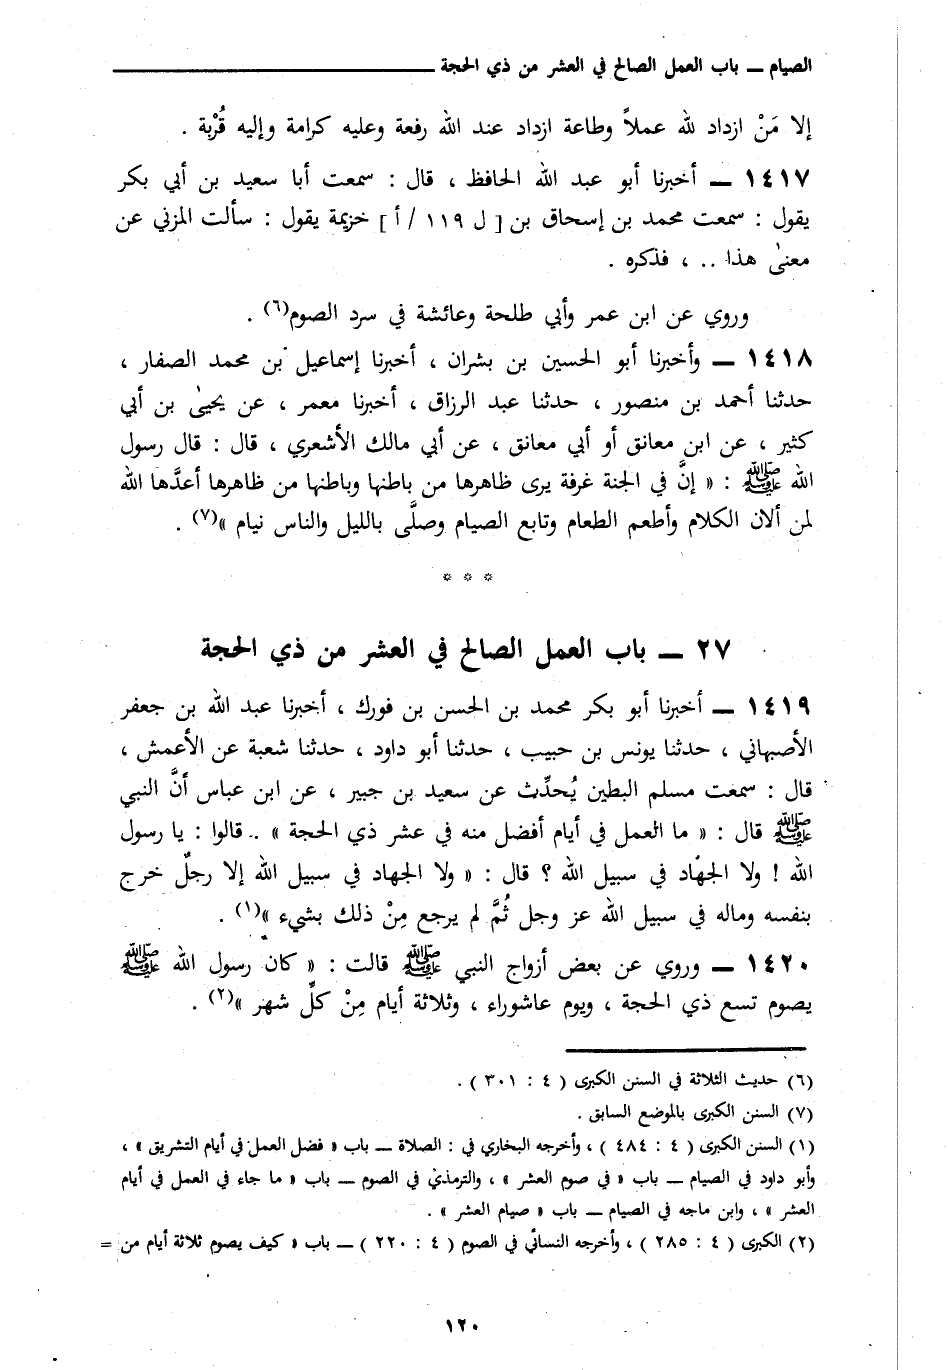 الصيام ــ باب العمل الصالح في العشر من ذي الحجة
إلا مَنْ ازداد لله عملاً وطاعة ازداد عند الله رفعة وعليه كرامة وإليه قُرْبة .
١٤١٧ ــ أخبرنا أبو عبد الله الحافظ ، قال : سمعت أبا سعيد بن أبي بكر
يقول : سمعت محمد بن إسحاق بن [ ل ١١٩ / أ ] خزيمة يقول : سألت المزني عن
معنىٰ هذا .. ، فذكره .
وروي عن ابن عمر وأبي طلحة وعائشة في سرد الصوم(٦) .
١٤١٨ ــ وأخبرنا أبو الحسين بن بشران ، أخبرنا إسماعيل بن محمد الصفار ،
حدثنا أحمد بن منصور ، حدثنا عبد الرزاق ، أخبرنا معمر ، عن يحيىٰ بن أبي
كثير ، عن ابن معانق أو أبي معانق ، عن أبي مالك الأشعري ، قال : قال رسول
الله ﷺ : « إنَّ في الجنة غرفة يرى ظاهرها من باطنها وباطنها من ظاهرها أعدَّها الله
لمن ألان الكلام وأطعم الطعام وتابع الصيام وصلَّى بالليل والناس نيام »(٧) .
* * *
٢٧ ــ باب العمل الصالح في العشر من ذي الحجة
١٤١٩ ــ أخبرنا أبو بكر محمد بن الحسن بن فورك ، أخبرنا عبد الله بن جعفر
الأصبهاني ، حدثنا يونس بن حبيب ، حدثنا أبو داود ، حدثنا شعبة عن الأعمش ،
قال : سمعت مسلم البطين يُحدِّث عن سعيد بن جبير ، عن ابن عباس أنَّ النبي
ﷺ قال : « ما العمل في أيام أفضل منه في عشر ذي الحجة » .. قالوا : يا رسول
الله ! ولا الجهاد في سبيل الله ؟ قال : « ولا الجهاد في سبيل الله إلا رجلٌ خرج
بنفسه وماله في سبيل الله عز وجل ثُمَّ لم يرجع مِنْ ذلك بشيء »(١) .
١٤٢٠ ــ وروي عن بعض أزواج النبي ﷺ قالت : « كان رسول الله ﷺ
يصوم تسع ذي الحجة ، ويوم عاشوراء ، وثلاثة أيام مِنْ كلِّ شهر »(٢) .
(٦) حديث الثلاثة في السنن الكبرى ( ٤ : ٣٠١ ) .
(٧) السنن الكبرى بالموضع السابق .
(١) السنن الكبرى ( ٤ : ٤٨٤ ) ، وأخرجه البخاري في : الصلاة ــ باب « فضل العمل في أيام التشريق » ،
وأبو داود في الصيام ــ باب « في صوم العشر » ، والترمذي في الصوم ــ باب « ما جاء في العمل في أيام
العشر » ، وابن ماجه في الصيام ــ باب « صيام العشر » .
(٢) الكبرى ( ٤ : ٢٨٥ ) ، وأخرجه النسائي في الصوم ( ٤ : ٢٢٠ ) ــ باب « كيف يصوم ثلاثة أيام من =
١٢٠